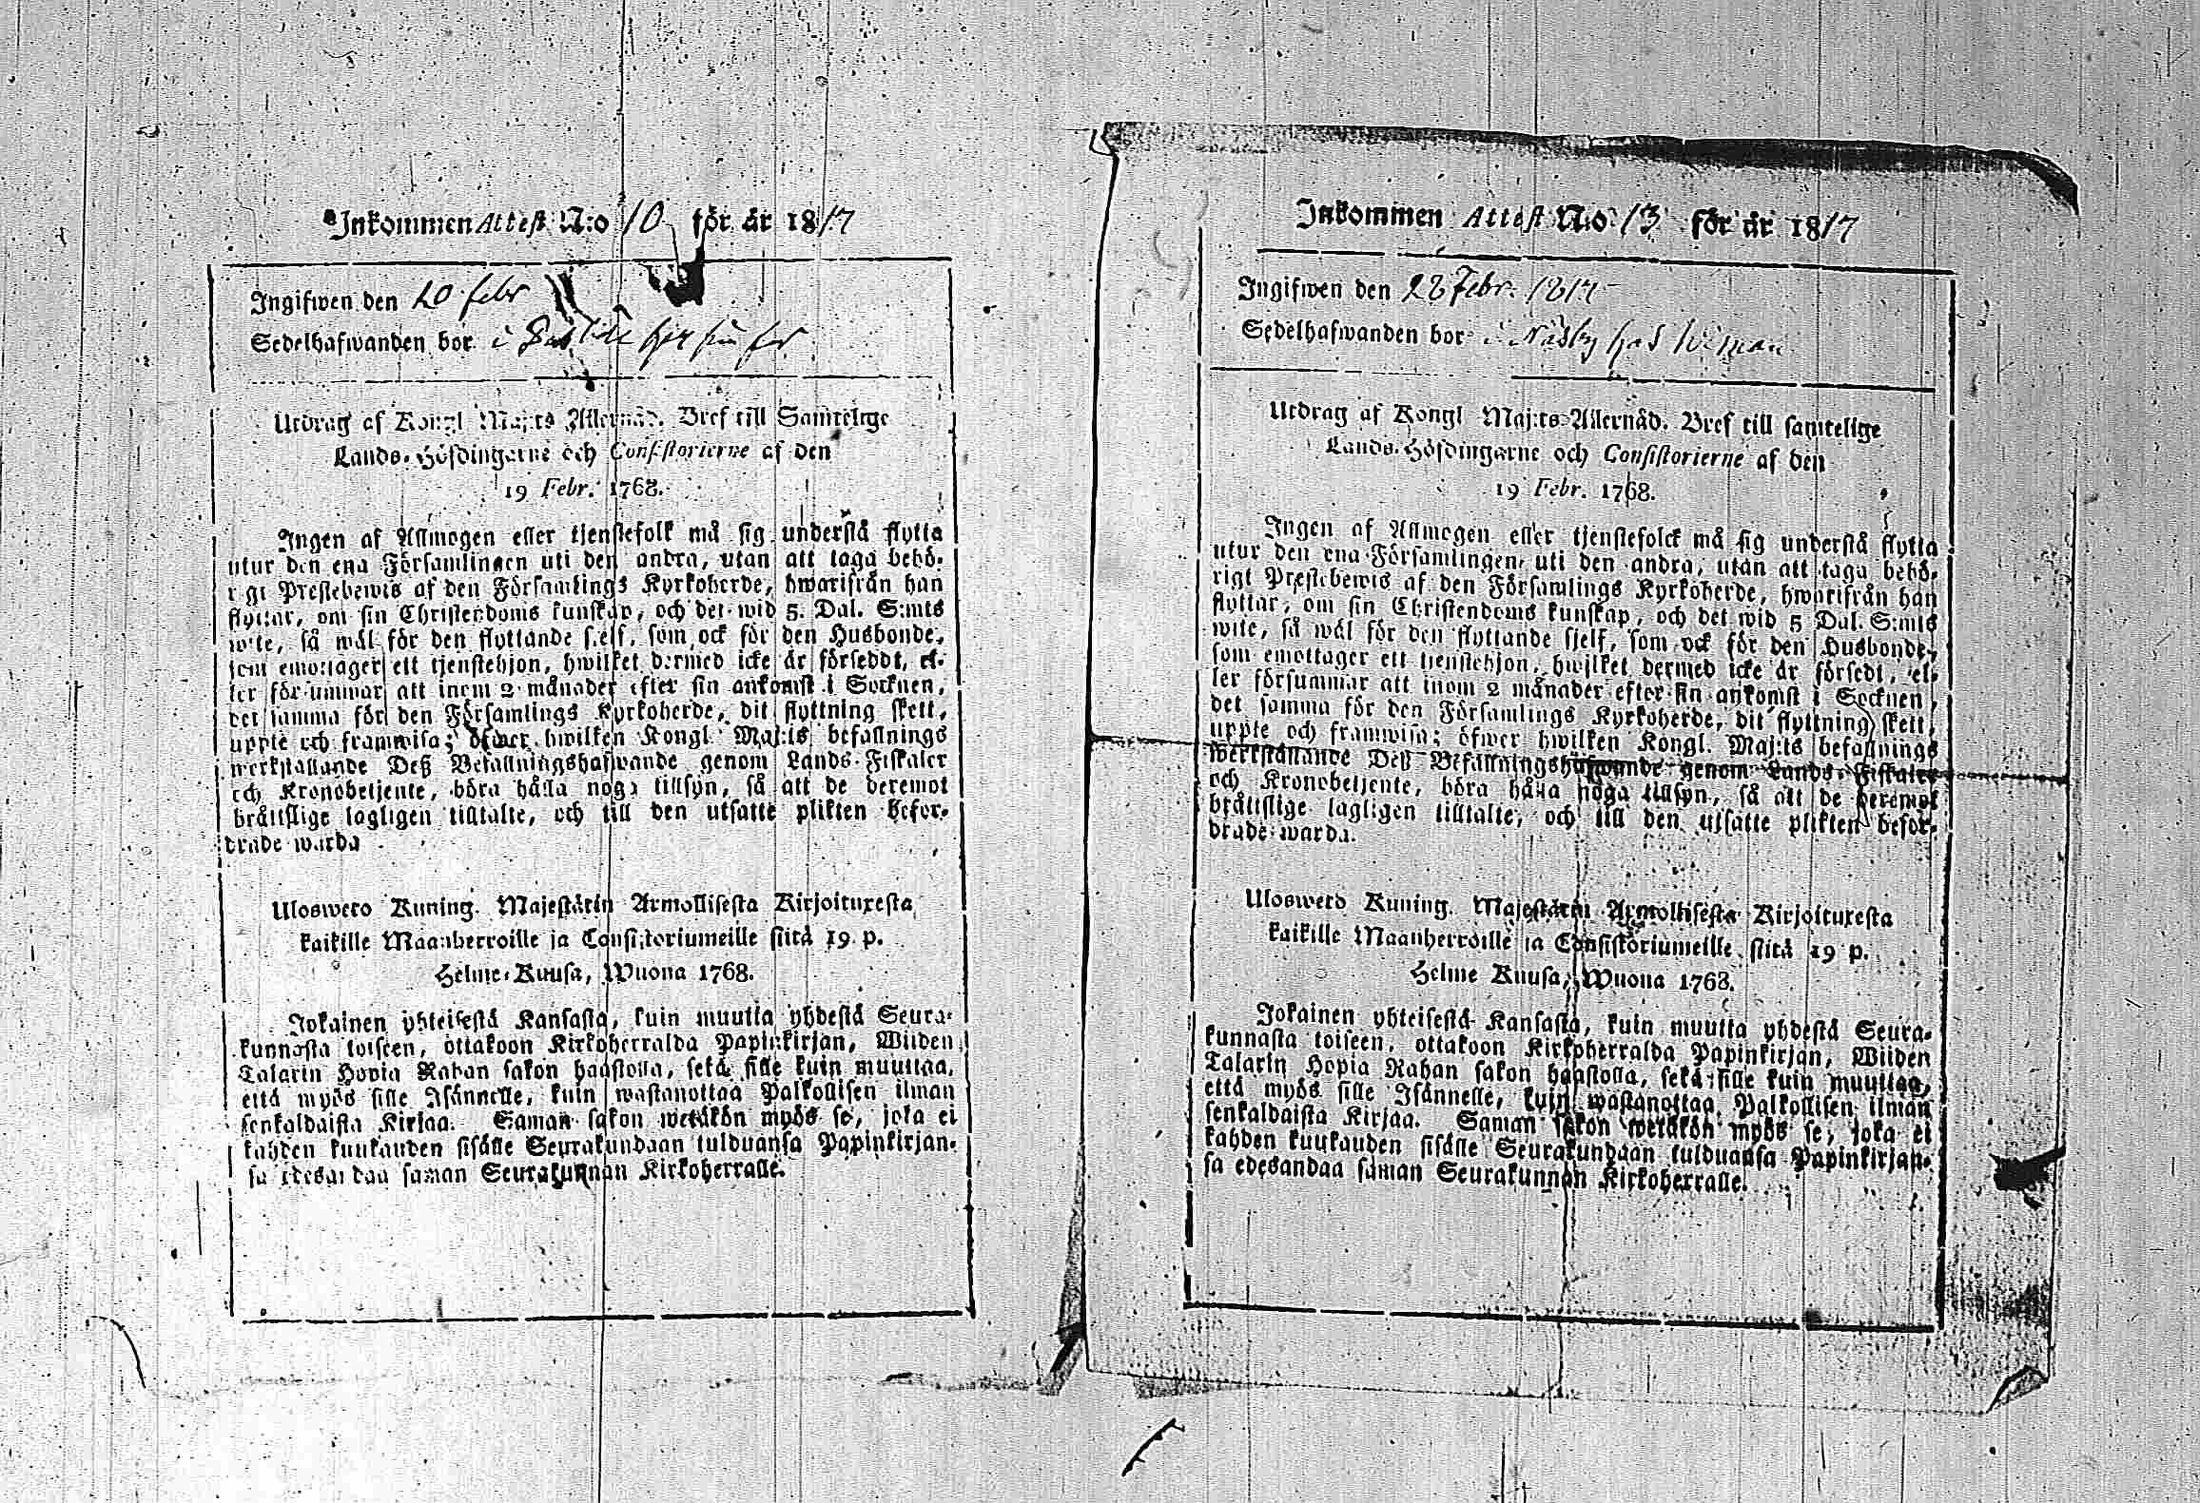 Inkommen Attest N:o 10 för år 1817
Ingifwen den 20 febr
Sedelhafwanden bor i
Utdrag af Kongl Maj:ts Allernåd. Bref till Samtelige
Lands-Höfdingarne och Consistorierne af den
19 Febr. 1768.
Ingen af Allmogen eller tjenstefolk må sig understå flytta
utur den ena Församlingen uti den andra, utan att taga behö-
rigt Prestebewis af den Församlings Kyrkoherde, hwarifrån han
flyttar, om sin Christendoms kunskap, och det wid 5. Dal. S:mts
wite, så wäl för den flyttande sjelf, som ock för den Husbonde,
som emottager ett tjenstehjon, hwilket dermed icke är försedt, el-
ler försummar att inom 2 månader efter sin ankomst i Socknen,
det samma för den Församlings Kyrkoherde, dit flyttning skett,
uppte och framwisa; öfwer hwilken Kongl. Maj:ts befallnings
werkställande Deß Befallningshafwande genom Lands-Fiskaler
och Kronobetjente, böra hålla noga tillsyn, så att de deremot
bråttslige lagligen tilltalte, och till den utsatte plikten befor-
drade warda
Ulosweto Kuning. Majestätin Armollisesta Kirjoituxesta
kaikille Maanherroille ja Consistoriumeille siitä 19 p.
Helme-Kuusa, Wuona 1768.
Jokainen yhteisestä Kansasta, kuin muutta yhdestä Seura-
kunnasta toiseen, ottakoon Kirkoherralda Papinkirjan, Wiiden
Talarin Hopia Rahan sakon haastolla, sekä sille kuin muuttaa,
että myös sille Isännelle, kuin wastanottaa Palkollisen ilman
senkaldaista Kirjaa. Saman sakon wetäkön myös se, joka ei
kahden kuukauden sisälle Seurakundaan tulduansa Papinkirjan-
sa edesandaa saman Seurakunnan Kirkoherralle.
Inkommen Attest N:o 13 för år 1817
Ingifwen den 28 Febr. 1817
Sedelhafwanden bor i Näsby hos Wiman
Utdrag af Kongl Maj:ts Allernåd. Bref till samtelige
Lands-Höfdingarne och Consistorierne af den
19 Febr. 1768.
Ingen af Allmogen eller tjenstefolck må sig understå flytta
utur den ena Församlingen uti den andra, utan att taga behö-
rigt Prestebewis af den Församlings Kyrkoherde, hwarifrån han
flyttar, om sin Christendoms kunskap, och det wid 5 Dal. S:mts
wite, så wäl för den flyttande sjelf, som ock för den Husbonde,
som emottager ett tjenstehjon, hwilket dermed icke är försedt, el-
ler försummar att inom 2 månader efter sin ankomst i Socknen,
det samma för den Församlings Kyrkoherde, dit flyttning skett,
uppte och framwisa; öfwer hwilken Kongl. Maj:ts befallnings
werkställande Deß Befallningshafwande genom Lands-Fiskaler
och Kronobetjente, böra hålla noga tillsyn, så att de deremot
bråttslige lagligen tilltalte, och till den utsatte plikten befor-
drade warda.
Ulosweto Kuning. Majestätin Armollisesta Kirjoituxesta
kaikille Maanherroille ja Consistoriumeille siitä 19 p.
Helme Kuusa, Wuona 1768.
Jokainen yhteisestä Kansasta, kuin muutta yhdestä Seura-
kunnasta toiseen, ottakoon Kirkoherralda Papinkirjan, Wiiden
Talarin Hopia Rahan sakon haastolla, sekä sille kuin muuttaa,
että myös sille Isännelle, kuin wastanottaa Palkollisen ilman
senkaldaista Kirjaa. Saman sakon wetäkön myös se, joka ei
kahden kuukauden sisälle Seurakundaan tulduansa Papinkirjan-
sa edesandaa saman Seurakunnan Kirkoherralle.